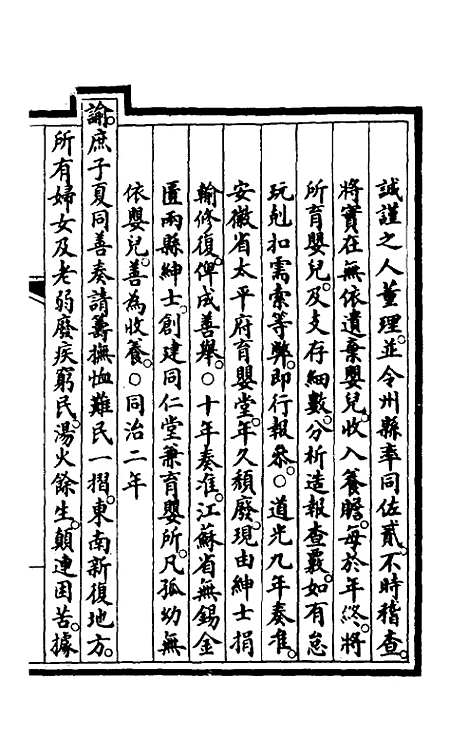 誠謹之人董理。並令州縣率同佐貳。不時稽查。
將實在無依遺棄嬰兒。收入養贍。每於年終。將
所育嬰兒。及支存細數。分析造報查覈。如有怠
玩剋扣需索等弊。即行報叅。○道光九年奏准。
安徽省太平府育嬰堂。年久頹廢。現由紳士捐
輸修復。俾成善舉。○十年奏准。江蘇省無錫金
匱兩縣紳士。創建同仁堂兼育嬰所。凡孤幼無
依嬰兒。善為收養。○同治二年
諭。庶子夏同善奏請籌撫恤難民一摺。東南新復地方。
所有婦女及老弱廢疾窮民。湯火餘生。顛連困苦。據